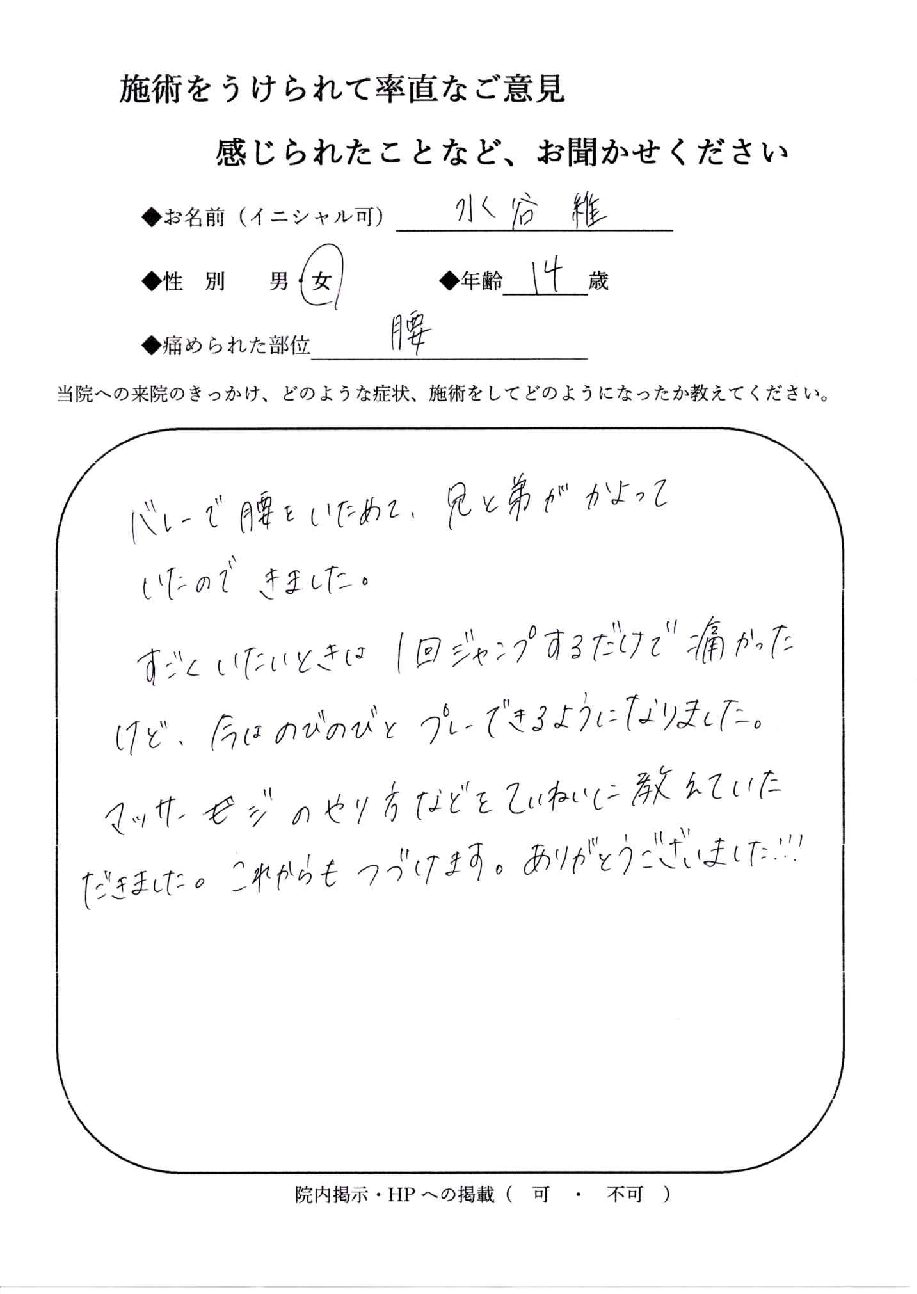 施術をうけられて率直なご意見
感じられたことなど、お聞かせください
◆お名前（イニシャル可） 水谷 維
◆性 別 男・女 ◆年齢 14 歳
◆痛められた部位 腰
当院への来院のきっかけ、どのような症状、施術をしてどのようになったか教えてください。
バレーで腰をいためて、兄と弟がかよって
いたのできました。
すごくいたいときは1回ジャンプするだけで痛かった
けど、今はのびのびとプレーできるようになりました。
マッサージのやり方などをていねいに教えていた
だきました。これからもつづけます。ありがとうございました!!!
院内掲示・HPへの掲載（ 可 ・ 不可 ）